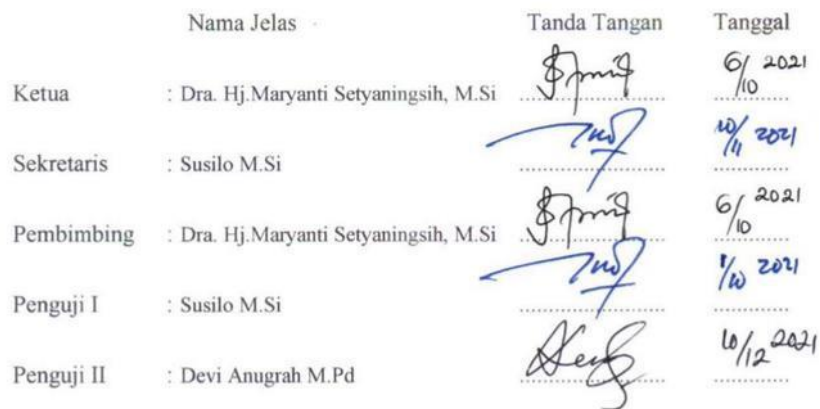 Nama Jelas Tanda Tangan Tanggal
Ketua : Dra. Hj.Maryanti Setyaningsih, M.Si 6/10 2021
Sekretaris : Susilo M.Si 10/11 2021
Pembimbing : Dra. Hj.Maryanti Setyaningsih, M.Si 6/10 2021
Penguji I : Susilo M.Si 1/10 2021
Penguji II : Devi Anugrah M.Pd 10/12 2021